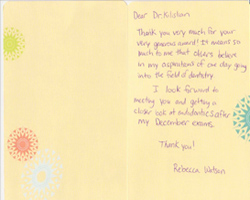 Dear Dr. Kilistan
Thank you very much for your
very generous award! It means so
much to me that others believe
in my aspirations of one day going
into the field of dentistry.
I look forward to
meeting you and getting a
closer look at orthodontics after
my December exams.
Thank you!
Rebecca Watson